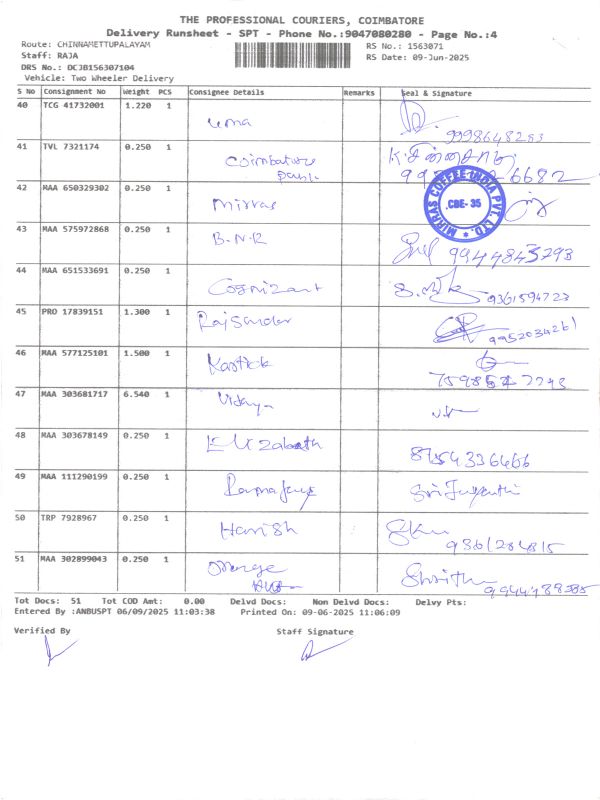 THE PROFESSIONAL COURIERS, COIMBATORE
Delivery Runsheet - SPT - Phone No.:9047080280 - Page No.:4
Route: CHINNAMETTUPALAYAM RS No.: 1563071
Staff: RAJA RS Date: 09-Jun-2025
DRS No.: DCJB156307104
Vehicle: Two Wheeler Delivery
S No Consignment No Weight PCS Consignee Details Remarks Seal & Signature
40 TCG 41732001 1.220 1 uma
9998648253
41 TVL 7321174 0.250 1 Coimbature
42 MAA 650329302 0.250 1 Mirras
MIRRAS COFFEE INDIA PVT. LTD.
CBE- 35
43 MAA 575972868 0.250 1 B.N.R 9944845793
44 MAA 651533691 0.250 1 Cognizant 9361594723
45 PRO 17839151 1.300 1 Rajsundar 9952034261
46 MAA 577125101 1.500 1 Kartick
47 MAA 303681717 6.540 1 Vijaya
48 MAA 303678149 0.250 1 Elizabath 8754336466
49 MAA 111290199 0.250 1
50 TRP 7928967 0.250 1 Harish
9361284815
51 MAA 302899043 0.250 1 Orange
Tot Docs: 51 Tot COD Amt: 0.00 Delvd Docs: Non Delvd Docs: Delvy Pts:
Entered By :ANBUSPT 06/09/2025 11:03:38 Printed On: 09-06-2025 11:06:09
Verified By Staff Signature